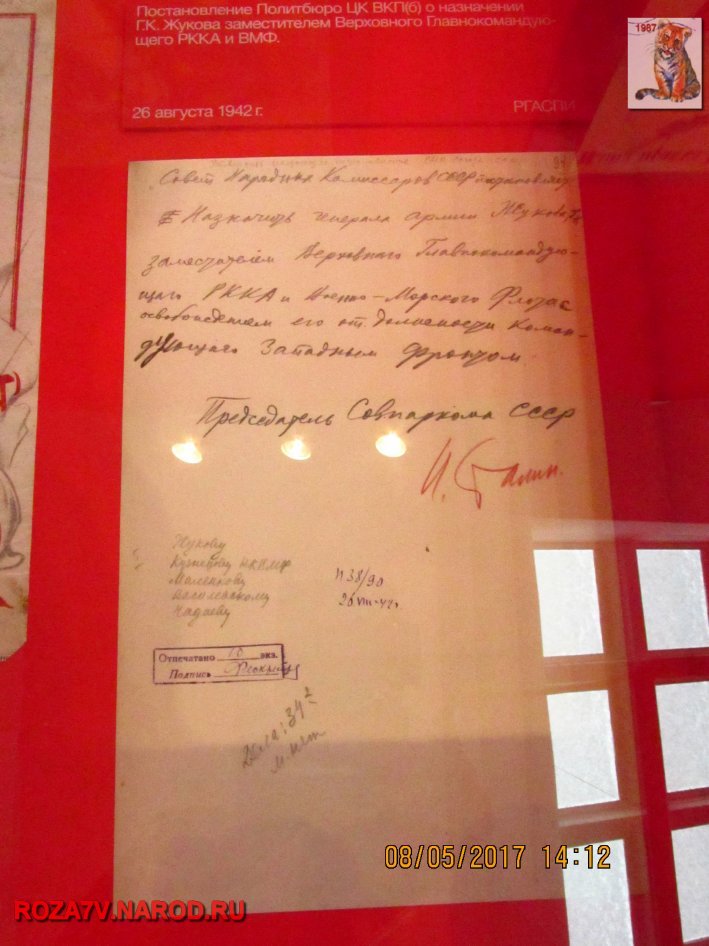 Постановление Политбюро ЦК ВКП(б) о назначении
Г.К. Жукова заместителем Верховного Главнокомандую-
щего РККА и ВМФ.
1987
26 августа 1942 г.
РГАСПИ
Совет Народных Комиссаров СССР постановляет
Назначить генерала армии Жукова Г.К.
заместителем Верховного Главнокомандую-
щего РККА и Военно-Морского Флота с
освобождением его от должности коман-
дующего Западным фронтом.
Председатель Совнаркома СССР
И. Сталин.
Жукову
Кузнецову НКВМФ
Маленкову
Василевскому
Чадаеву
П 38/90
26 VIII-42г
Отпечатано 10 экз.
Подпись
08/05/2017 14:12
ROZA7V.NAROD.RU